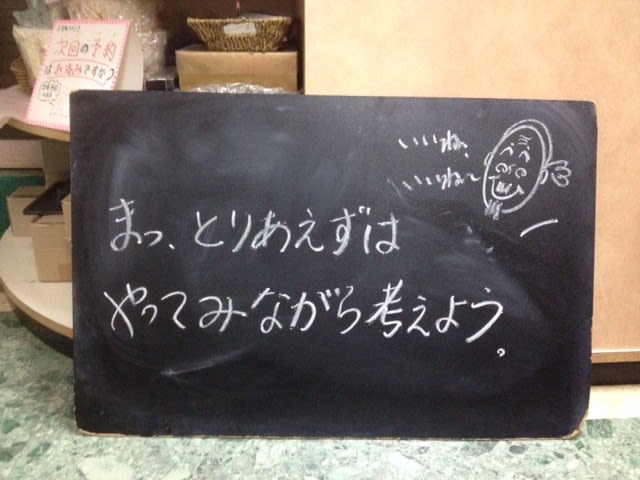 次回の予約
はお済みですか？
いいね、
いいね〜
まっ、とりあえずは
やってみながら考えよう。